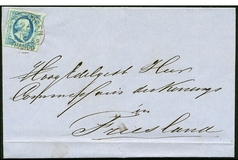 Hoog Edelgest. Heer
Commissaris des Konings
in
Friesland